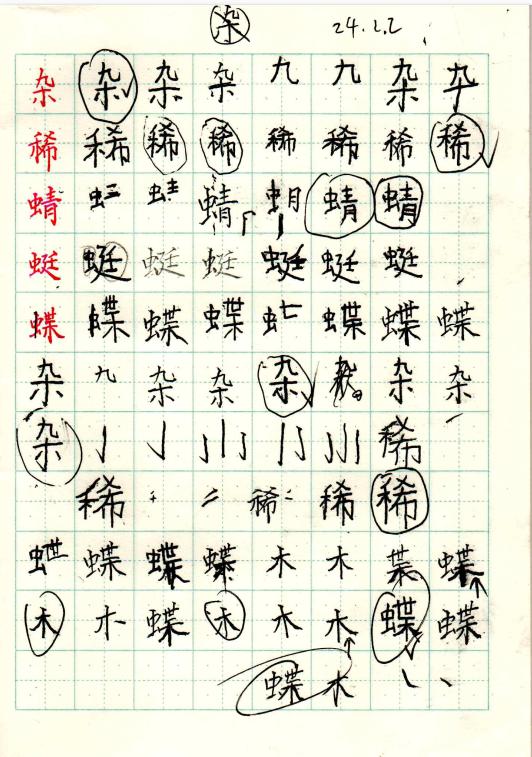 杂 24.2.2
杂 杂 杂 杂 九 九 杂
稀 稀 稀 稀 稀 稀 稀 稀
蜻 虫三 虫丰 蜻 虫月 蜻 蜻
蜓 蜓 蜓 蜓 蜓 蜓 蜓
蝶 蝶 蝶 蝶 虫七 蝶 蝶 蝶
杂 九 杂 杂 杂 杂 杂
杂 稀
稀 稀 稀 稀
虫世 蝶 蝶 蝶 木 木 枼 蝶
木 木 蝶 木 木 木 蝶 蝶
蝶 木